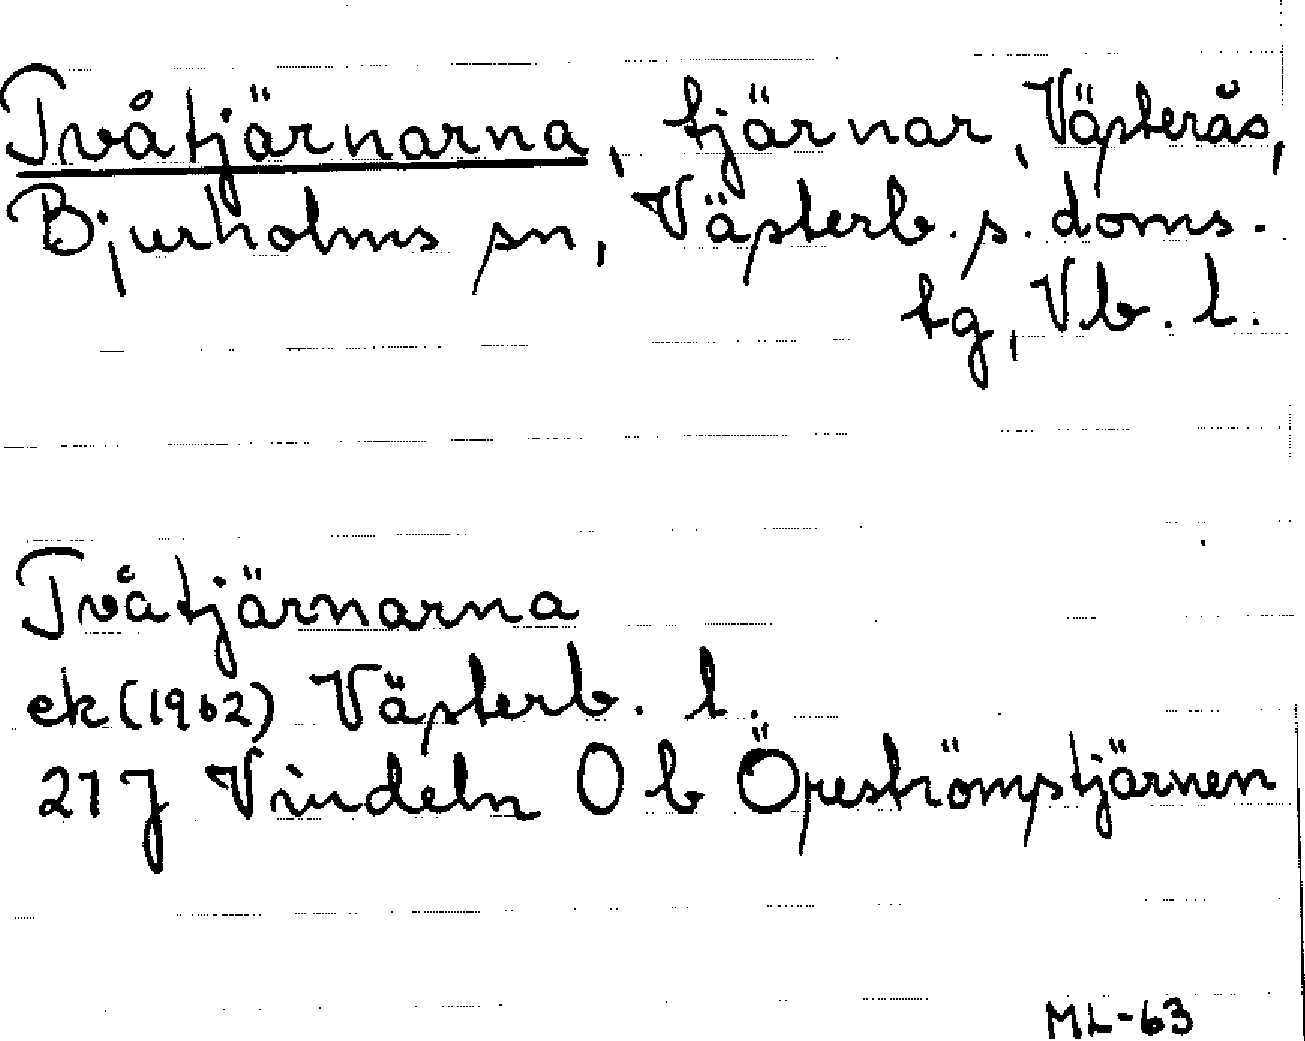 Tvåtjärnarna, tjärnar, Västerås,
Bjurholms sn, Västerb. s. doms.
tg, Vb. l.
Tvåtjärnarna
ek (1962) Västerb. l.
21 J Vindeln O b Öreströmstjärnen
ML-63